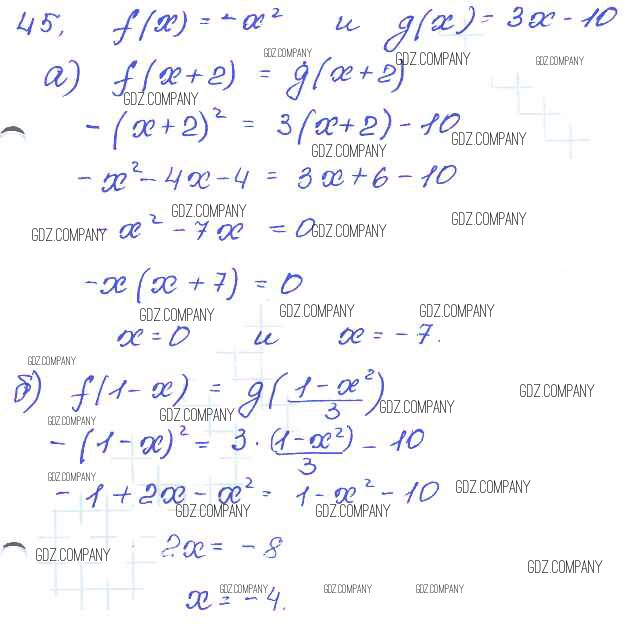 45. f(x) = -x² и g(x) = 3x - 10
GDZ.COMPANY GDZ.COMPANY GDZ.COMPANY
а) f(x+2) = g(x+2)
GDZ.COMPANY
-(x+2)² = 3(x+2) - 10
GDZ.COMPANY GDZ.COMPANY
-x² - 4x - 4 = 3x + 6 - 10
GDZ.COMPANY GDZ.COMPANY
GDZ.COMPANY - x² - 7x = 0 GDZ.COMPANY
-x(x + 7) = 0
GDZ.COMPANY GDZ.COMPANY GDZ.COMPANY
x = 0 и x = -7.
GDZ.COMPANY
б) f(1-x) = g((1-x²)/3)
GDZ.COMPANY GDZ.COMPANY GDZ.COMPANY
GDZ.COMPANY
-(1-x)² = 3·(1-x²)/3 - 10
GDZ.COMPANY
-1 + 2x - x² = 1 - x² - 10 GDZ.COMPANY
GDZ.COMPANY GDZ.COMPANY
GDZ.COMPANY 2x = -8
GDZ.COMPANY
x = -4.
GDZ.COMPANY GDZ.COMPANY GDZ.COMPANY